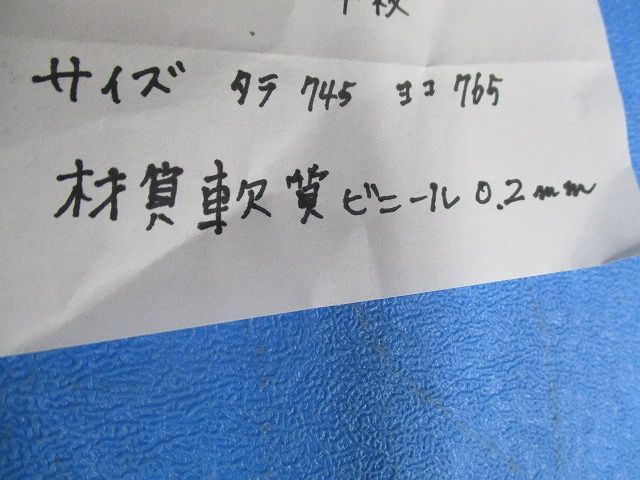 枚
サイズ タテ 745 ヨコ 765
材質軟質ビニール 0.2mm